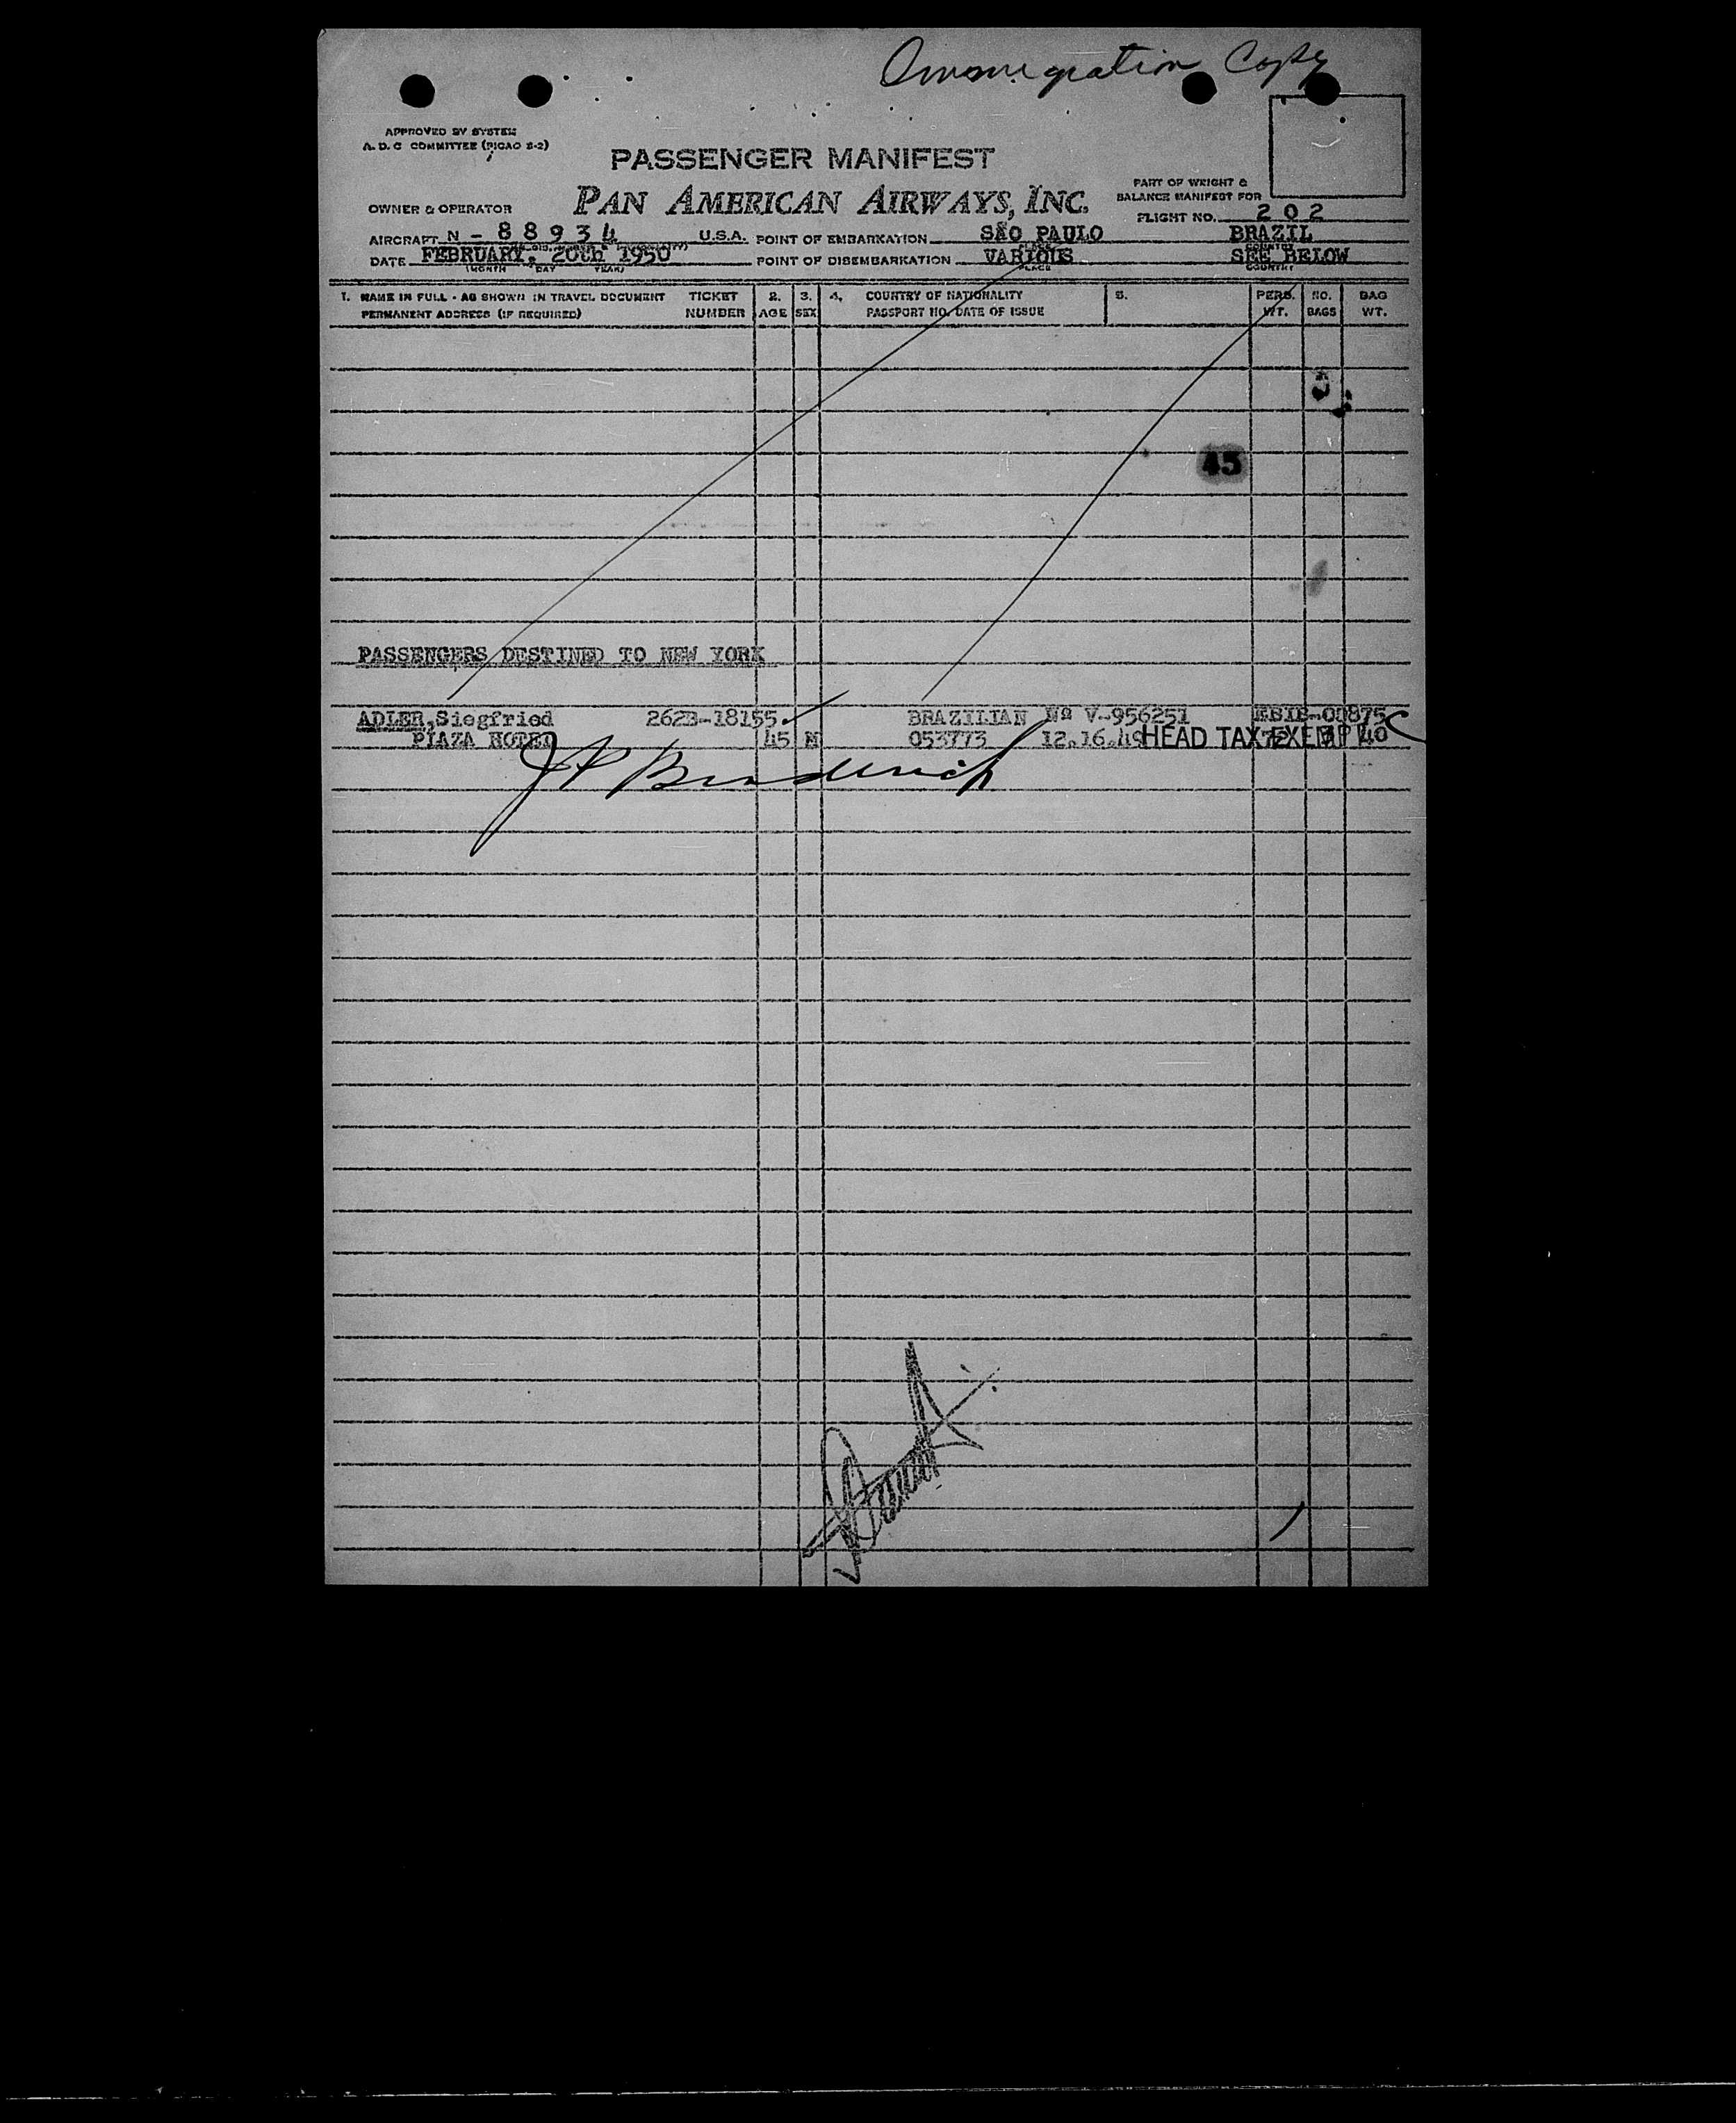 Immigration Copy
APPROVED BY SYSTEM
A. D. C COMMITTEE (PICAO S-2)
PASSENGER MANIFEST
PAN AMERICAN AIRWAYS, INC.
PART OF WEIGHT &
BALANCE MANIFEST FOR
OWNER & OPERATOR
FLIGHT NO. 202
AIRCRAFT N - 88934 U.S.A. POINT OF EMBARKATION SÃO PAULO BRAZIL
PLACE COUNTRY
DATE FEBRUARY, 20th 1950 POINT OF DISEMBARKATION VARIOUS SEE BELOW
(MONTH DAY YEAR) PLACE COUNTRY
1. NAME IN FULL - AS SHOWN IN TRAVEL DOCUMENT TICKET 2. 3. 4. COUNTRY OF NATIONALITY 5. PERS. NO. BAG
PERMANENT ADDRESS (IF REQUIRED) NUMBER AGE SEX PASSPORT NO. DATE OF ISSUE WT. BAGS WT.
45
PASSENGERS DESTINED TO NEW YORK
ADLER, Siegfried 262B-18155 BRAZILIAN Nº V-956251
PLAZA HOTEL 45 M 053773 12.16.49 HEAD TAX EXEMPT 40